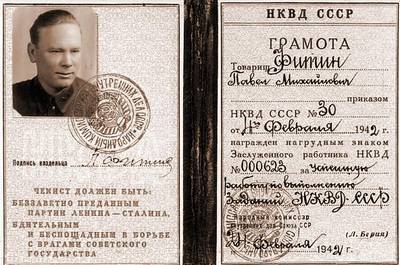 ВНУТРЕННИХ ДЕЛ
НАРОДНЫЙ
Подпись владельца
ЧЕКИСТ ДОЛЖЕН БЫТЬ:
БЕЗЗАВЕТНО ПРЕДАННЫМ
ПАРТИИ ЛЕНИНА—СТАЛИНА,
БДИТЕЛЬНЫМ
И БЕСПОЩАДНЫМ В БОРЬБЕ
С ВРАГАМИ СОВЕТСКОГО
ГОСУДАРСТВА
НКВД СССР
ГРАМОТА
Товарищ Фитин
Павел Михайлович
приказом
НКВД СССР № 30
от Февраля 1942 г
награжден нагрудным знаком
Заслуженного работника НКВД
№ 000623 за успешную
работу по выполнению
заданий НКВД-СССР
Народный комиссар
внутренних дел Союза ССР
(Л. Берия)
Февраля 1942 г